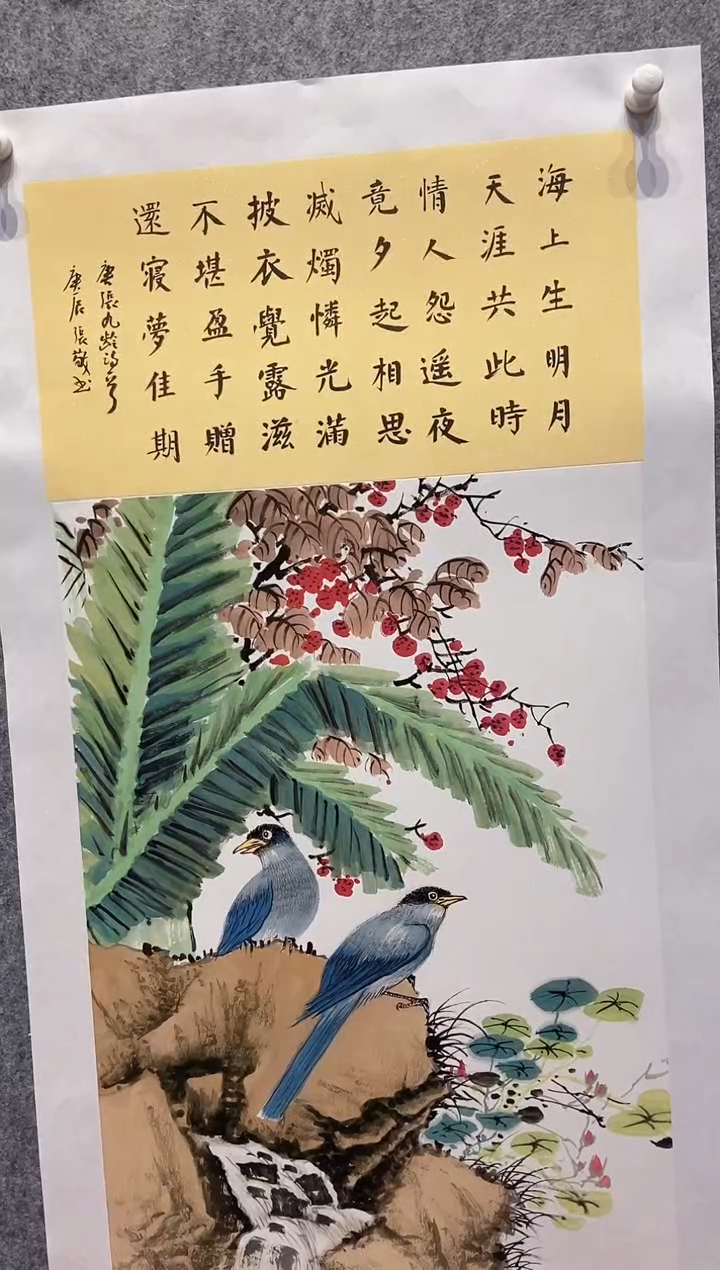 海上生明月
天涯共此時
情人怨遥夜
竟夕起相思
滅燭憐光滿
披衣覺露滋
不堪盈手贈
還寝夢佳期
張九龄詩
庚辰張敬书